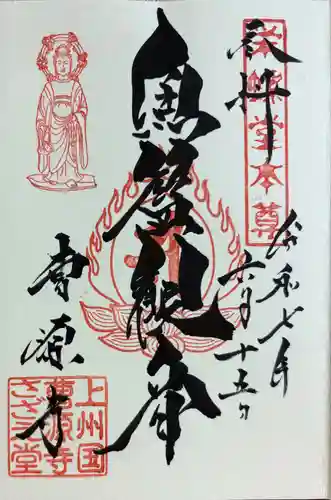 奉拝
栄螺堂本尊
令和七年
六月十五日
魚籃観音
曹源寺
上州国
曹源寺
さざえ堂